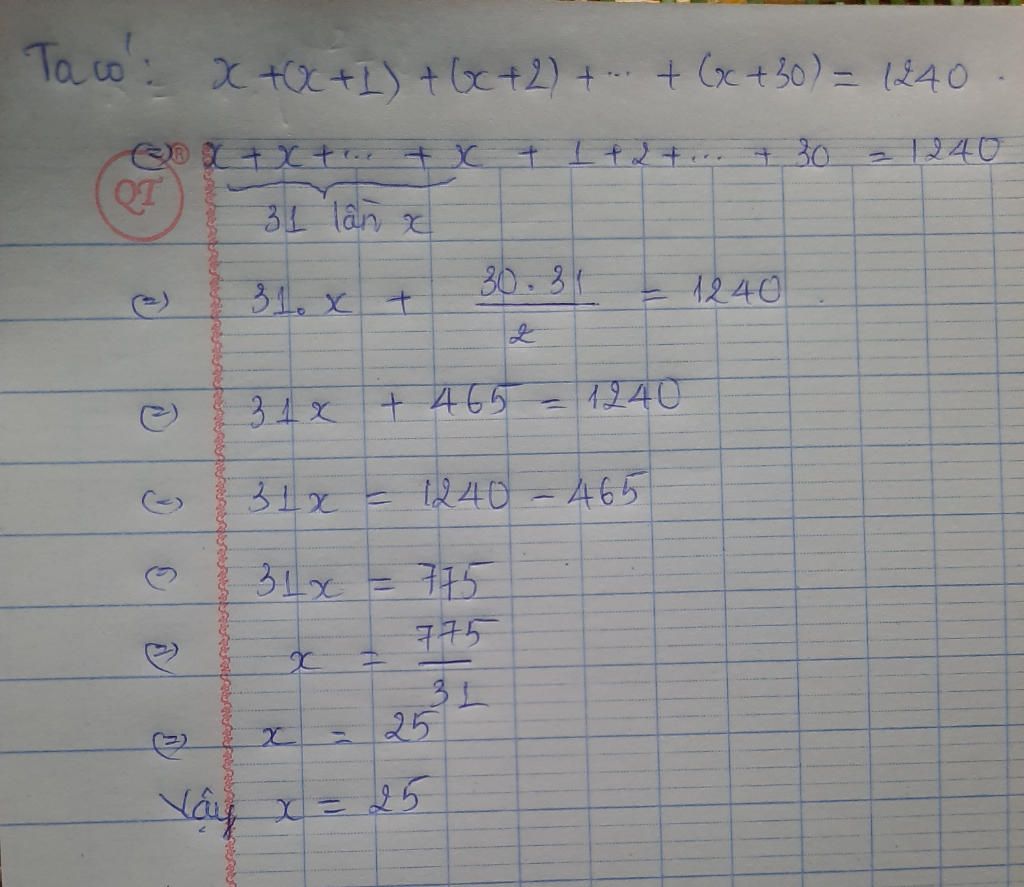 Ta có: x + (x+1) + (x+2) + ... + (x+30) = 1240.
(=) x + x + ... + x + 1 + 2 + ... + 30 = 1240
QT®
31 lần x
(=) 31.x + 30.31/2 = 1240.
(=) 31x + 465 = 1240
(=) 31x = 1240 - 465
(=) 31x = 775
(=) x = 775/31
(=) x = 25
Vậy x = 25